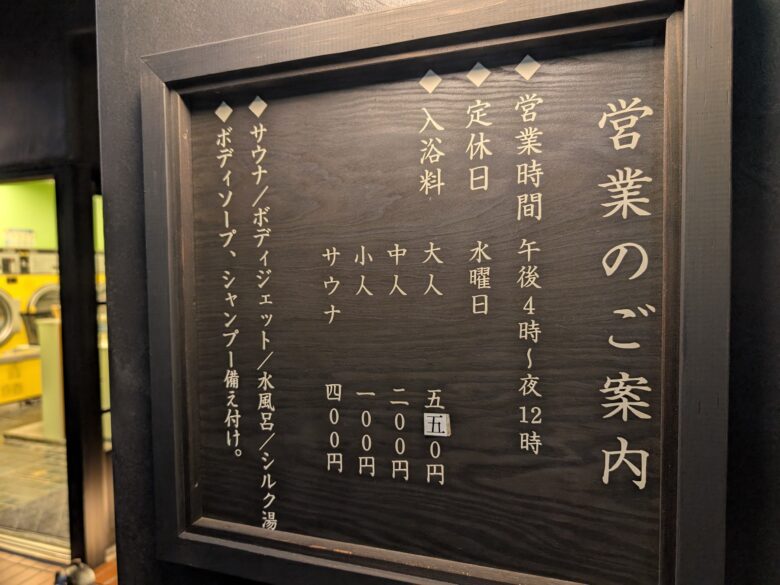 営業のご案内
◆営業時間 午後4時〜夜12時
◆定休日 水曜日
◆入浴料 大人 五五〇円
中人 二〇〇円
小人 一〇〇円
サウナ 四〇〇円
◆サウナ/ボディジェット/水風呂/シルク湯
◆ボディソープ、シャンプー備え付け。